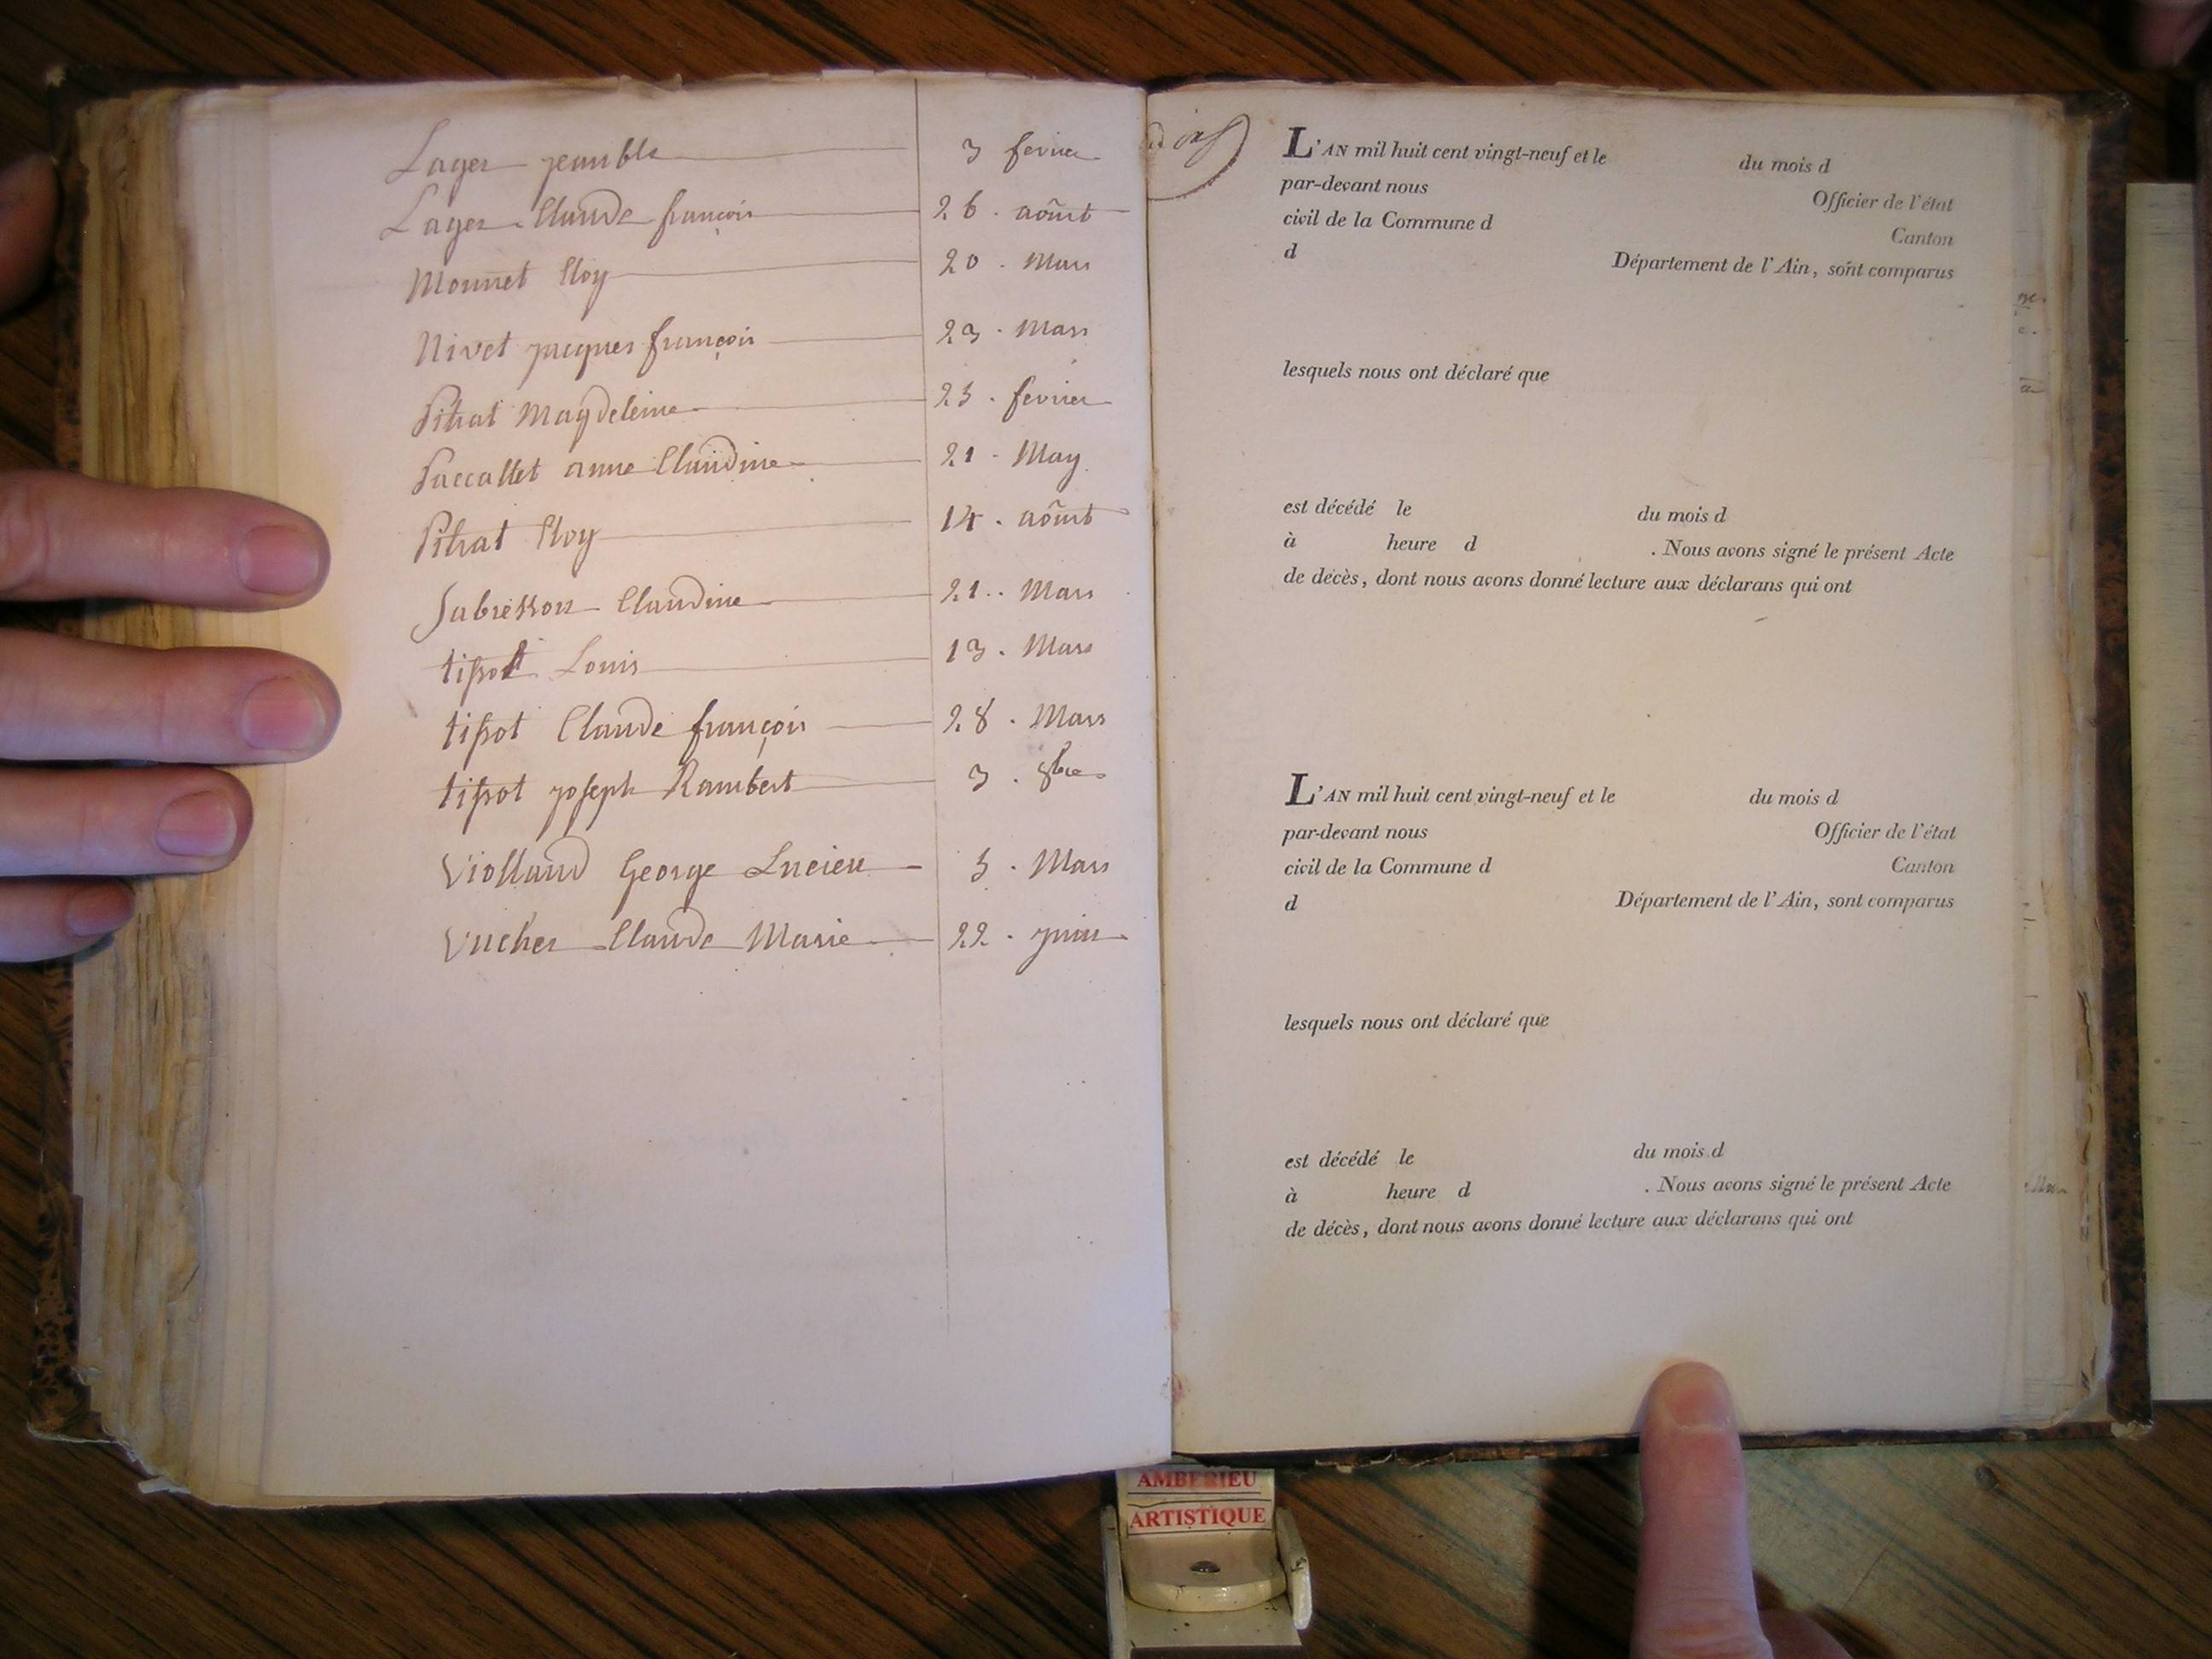 Lager jean bte 3 fevrier
Lager Claude françois 26. aôust
Monnet Eloy 20. Mars
Nivet jacques françois 23. Mars
Pitrat Magdeleine 25. fevrier
Paccallet anne Claudine 21. May
Pitrat Eloy 14. aôust
Sabresson Claudine 21. Mars
tissot Louis 13. Mars
tissot Claude françois 28. Mars
tissot joseph Rambert 3. 8bre
Violland George Lucien 5. Mars
Vucher Claude Marie 22. juin
L'AN mil huit cent vingt-neuf et le du mois d
par-devant nous Officier de l'état
civil de la Commune d Canton
d Département de l'Ain, sont comparus
lesquels nous ont déclaré que
est décédé le du mois d
à heure d . Nous avons signé le présent Acte
de décès, dont nous avons donné lecture aux déclarans qui ont
L'AN mil huit cent vingt-neuf et le du mois d
par-devant nous Officier de l'état
civil de la Commune d Canton
d Département de l'Ain, sont comparus
lesquels nous ont déclaré que
est décédé le du mois d
à heure d . Nous avons signé le présent Acte
de décès, dont nous avons donné lecture aux déclarans qui ont
AMBERIEU
ARTISTIQUE